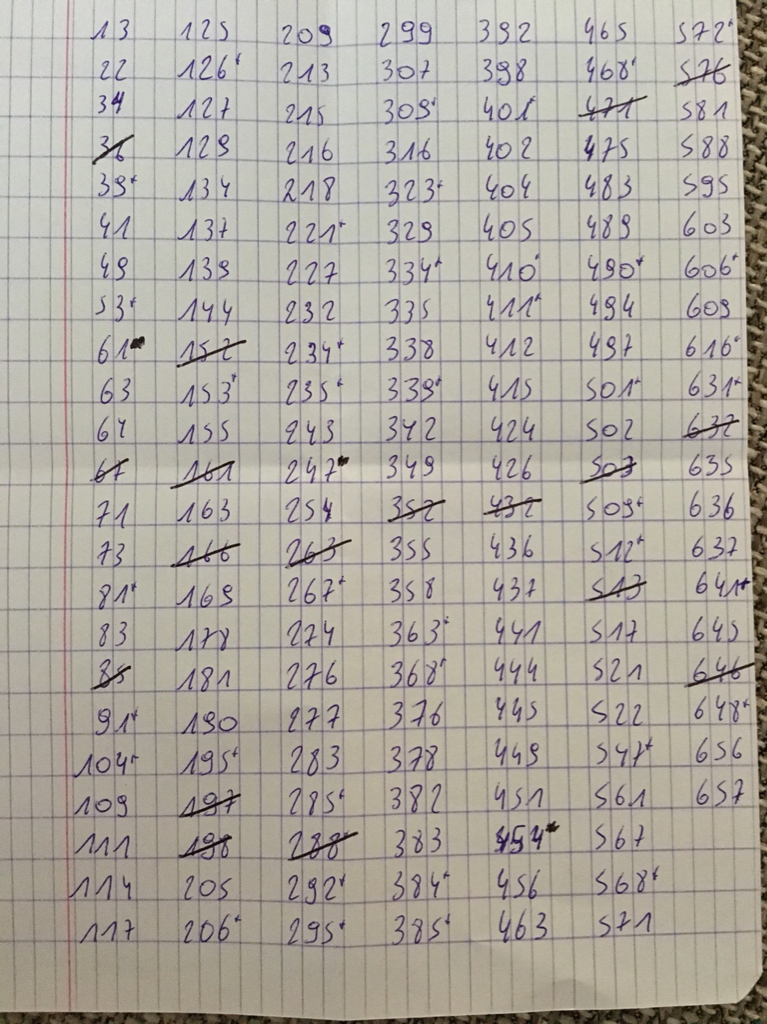 13 125 209 299 392 465 572*
22 126* 213 307 398 468* 576
34 127 215 309* 401* 471 581
36 129 216 316 402 475 588
39* 134 218 323* 404 483 595
41 137 221* 329 405 489 603
49 139 227 334* 410* 490* 606*
53* 144 232 335 411* 494 609
61* 152 234* 338 412 497 616*
63 153* 235* 339* 415 501* 631*
64 155 243 342 424 502 632
67 161 247* 349 426 507 635
71 163 254 352 432 509* 636
73 166 263 355 436 512* 637
81* 169 267* 358 437 513 641*
83 178 274 363* 441 517 645
85 181 276 368* 444 521 646
91* 190 277 376 445 522 648*
104* 195* 283 378 449 547* 656
109 197 285* 382 451 561 657
111 198 288* 383 454* 567
114 205 292* 384* 456 568*
117 206* 295* 385* 463 571